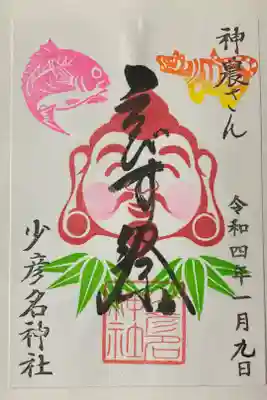 神農さん
令和四年一月九日
えびす祭
少彦名神社
少彦名神社